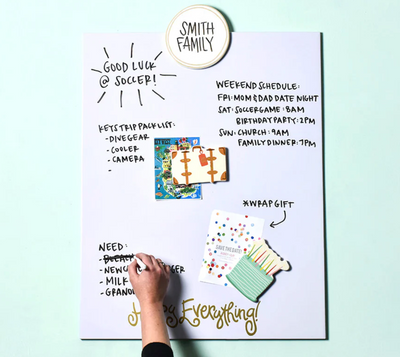 SMITH
FAMILY
GOOD LUCK
@ SOCCER!
WEEKEND SCHEDULE:
FRI: MOM & DAD DATE NIGHT
SAT: SOCCER GAME: 8AM
BIRTHDAY PARTY: 2PM
SUN: CHURCH: 9AM
FAMILY DINNER: 7PM
KEYS TRIP PACK LIST:
- DIVE GEAR
- COOLER
- CAMERA
-
*WRAP GIFT
SAVE THE DATE!
NEED:
- BLEACH
- NEW
- MILK
- GRANO
Happy Everything!